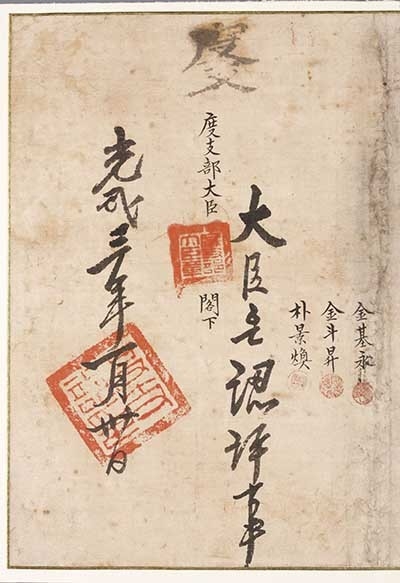 金基永
金斗昇
朴景煥
大臣認許事
度支
度支部大臣 閣下
光武三年一月卅日